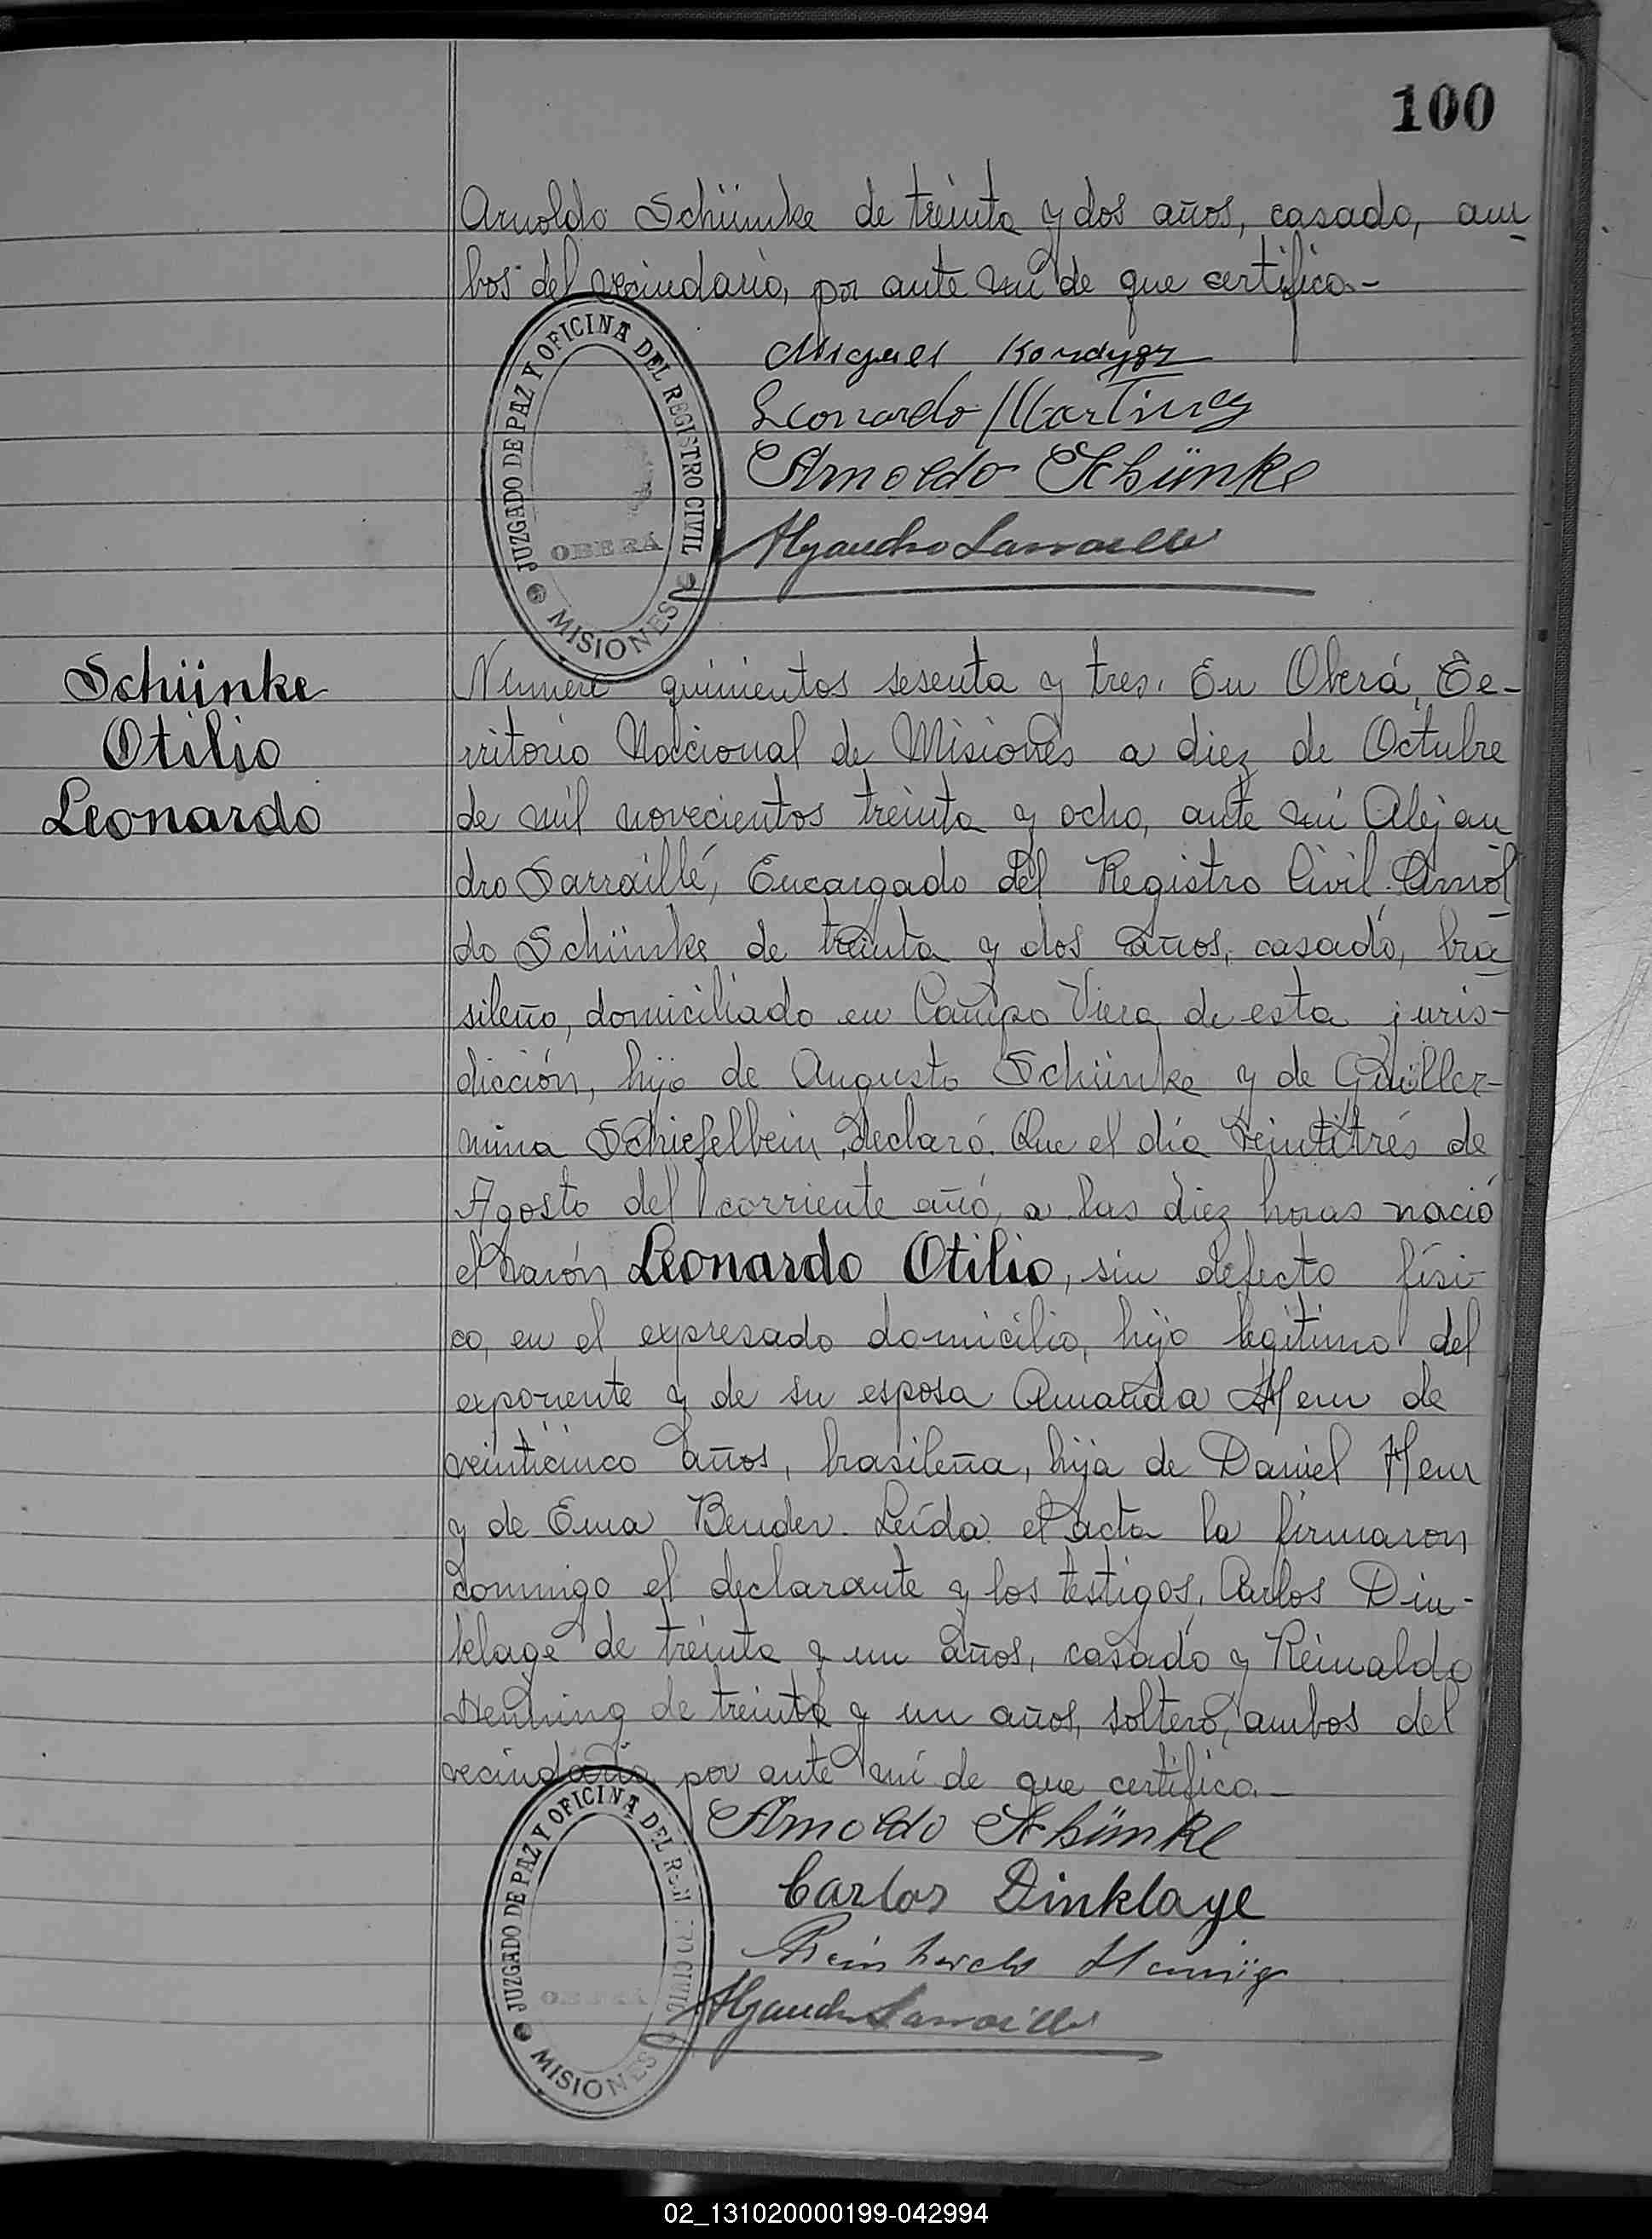 100
Arnoldo Schünke de treinta y dos años, casado, am
bos del vecindario, por ante mí de que certifico.-
JUZGADO DE PAZ Y OFICINA DEL REGISTRO CIVIL
OBERÁ
MISIONES
Miguel
Leonardo Martinez
Arnoldo Schünke
Alejandro Sarraillé
Schünke
Otilio
Leonardo
Número quinientos sesenta y tres. En Oberá, Te-
rritorio Nacional de Misiones a diez de Octubre
de mil novecientos treinta y ocho, ante mí Alejan
dro Sarraillé, Encargado del Registro Civil. Arnol
do Schünke de treinta y dos años, casado, bra
sileño, domiciliado en Campo Viera de esta juris-
dicción, hijo de Augusto Schünke y de Guiller-
mina Schiefelbein, declaró. Que el día veintitrés de
Agosto del corriente año, a las diez horas nació
el varón Leonardo Otilio, sin defecto físi-
co, en el expresado domicilio, hijo legítimo del
exponente y de su esposa Amanda Henn de
veinticinco años, brasileña, hija de Daniel Henn
y de Ema Bender. Leída el acta la firmaron
conmigo el declarante y los testigos, Carlos Din-
klage de treinta y un años, casado y Reinaldo
Henning de treinta y un años, soltero, ambos del
vecindario por ante mí de que certifico.-
JUZGADO DE PAZ Y OFICINA DEL REGISTRO CIVIL
OBERÁ
MISIONES
Arnoldo Schünke
Carlos Dinklage
Alejandro Sarraillé
02_131020000199-042994